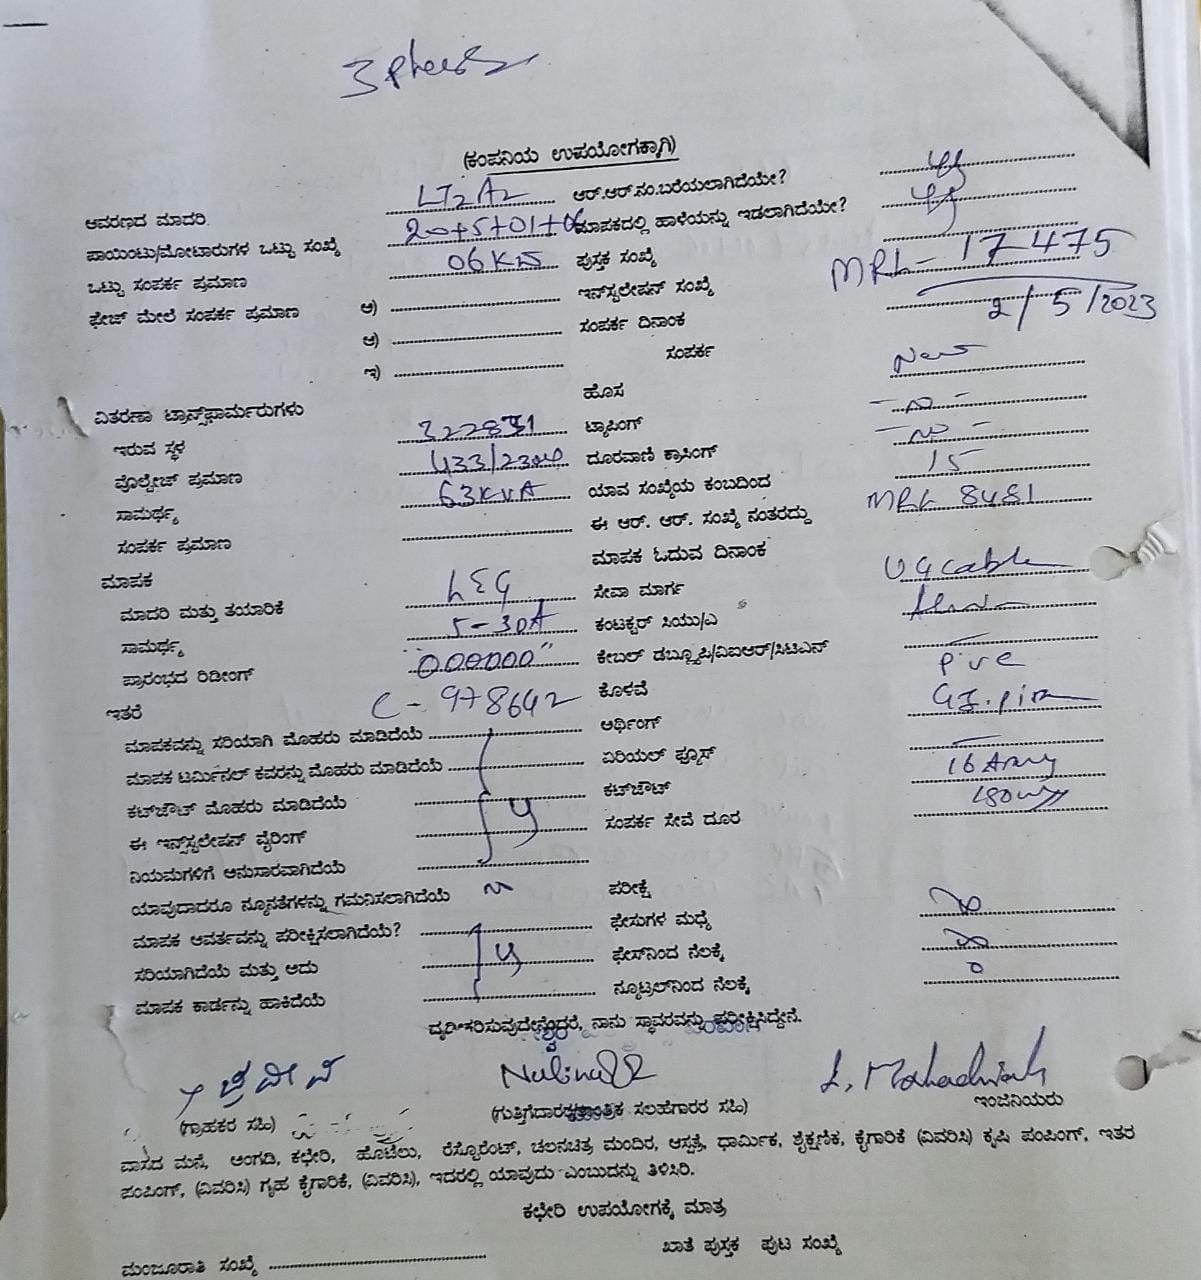 3 Phase
(ಕಂಪನಿಯ ಉಪಯೋಗಕ್ಕಾಗಿ)
ಆವರಣದ ಮಾದರಿ LT2A2 ಆರ್.ಆರ್.ನಂ.ಬರೆಯಲಾಗಿದೆಯೇ?
ಪಾಯಿಂಟು/ಮೋಟಾರುಗಳ ಒಟ್ಟು ಸಂಖ್ಯೆ 20+5+01+06 ಮಾಪಕದಲ್ಲಿ ಹಾಳೆಯನ್ನು ಇಡಲಾಗಿದೆಯೇ?
ಒಟ್ಟು ಸಂಪರ್ಕ ಪ್ರಮಾಣ 06KW ಪುಸ್ತಕ ಸಂಖ್ಯೆ
ಫೇಜ್ ಮೇಲೆ ಸಂಪರ್ಕ ಪ್ರಮಾಣ ಅ) ಇನ್‌ಸ್ಟಲೇಷನ್ ಸಂಖ್ಯೆ MRL-17475
ಆ) ಸಂಪರ್ಕ ದಿನಾಂಕ 2/5/2023
ಇ) ಸಂಪರ್ಕ
ವಿತರಣಾ ಟ್ರಾನ್ಸ್‌ಫಾರ್ಮರುಗಳು ಹೊಸ New
ಇರುವ ಸ್ಥಳ ಟ್ಯಾಪಿಂಗ್ -no-
ವೊಲ್ಟೇಜ್ ಪ್ರಮಾಣ 433/230 ದೂರವಾಣಿ ಕ್ರಾಸಿಂಗ್ -no-
ಸಾಮರ್ಥ್ಯ 63KVA ಯಾವ ಸಂಖ್ಯೆಯ ಕಂಬದಿಂದ 15
ಸಂಪರ್ಕ ಪ್ರಮಾಣ ಈ ಆರ್. ಆರ್. ಸಂಖ್ಯೆ ನಂತರದ್ದು MRL 8481
ಮಾಪಕ ಮಾಪಕ ಓದುವ ದಿನಾಂಕ
ಮಾದರಿ ಮತ್ತು ತಯಾರಿಕೆ L&G ಸೇವಾ ಮಾರ್ಗ UG cable
ಸಾಮರ್ಥ್ಯ 5-30A ಕಂಟಕ್ಟರ್ ಸಿಯು/ಎ
ಪ್ರಾರಂಭದ ರಿಡೀಂಗ್ 000000 ಕೇಬಲ್ ಡಬ್ಲ್ಯೂಪಿ/ವಿಐಆರ್/ಸಿಟಿಎಸ್
ಇತರೆ C-978642 ಕೊಳವೆ PVC
ಮಾಪಕವನ್ನು ಸರಿಯಾಗಿ ಮೊಹರು ಮಾಡಿದೆಯೆ ಅರ್ಥಿಂಗ್ GI.pipe
ಮಾಪಕ ಟರ್ಮಿನಲ್ ಕವರನ್ನು ಮೊಹರು ಮಾಡಿದೆಯೆ ಏರಿಯಲ್ ಫ್ಯೂಸ್
ಕಟ್‌ಔಟ್ ಮೊಹರು ಮಾಡಿದೆಯೆ ಕಟ್‌ಔಟ್ 16 Amp
ಈ ಇನ್‌ಸ್ಟಲೇಷನ್ ವೈರಿಂಗ್ y ಸಂಪರ್ಕ ಸೇವೆ ದೂರ
ನಿಯಮಗಳಿಗೆ ಅನುಸಾರವಾಗಿದೆಯೆ
ಯಾವುದಾದರೂ ನ್ಯೂನತೆಗಳನ್ನು ಗಮನಿಸಲಾಗಿದೆಯೆ N ಪರೀಕ್ಷೆ
ಮಾಪಕ ಆವರ್ತವನ್ನು ಪರೀಕ್ಷಿಸಲಾಗಿದೆಯೆ? ಫೇಸುಗಳ ಮಧ್ಯೆ
ಸರಿಯಾಗಿದೆಯೆ ಮತ್ತು ಅದು y ಫೇಸ್‌ನಿಂದ ನೆಲಕ್ಕೆ
ಮಾಪಕ ಕಾರ್ಡನ್ನು ಹಾಕಿದೆಯೆ ನ್ಯೂಟ್ರಲ್‌ನಿಂದ ನೆಲಕ್ಕೆ 0
ದೃಢೀಕರಿಸುವುದೇನೆಂದರೆ, ನಾನು ಸ್ಥಾವರವನ್ನು ಪರೀಕ್ಷಿಸಿದ್ದೇನೆ.
L. Mahadwiah
(ಗ್ರಾಹಕರ ಸಹಿ) (ಗುತ್ತಿಗೆದಾರ ಸಲಹೆಗಾರರ ಸಹಿ) ಇಂಜಿನಿಯರು
ವಾಸದ ಮನೆ, ಅಂಗಡಿ, ಕಛೇರಿ, ಹೊಟೆಲು, ರೆಸ್ಟೊರೆಂಟ್, ಚಲನಚಿತ್ರ ಮಂದಿರ, ಆಸ್ಪತ್ರೆ, ಧಾರ್ಮಿಕ, ಶೈಕ್ಷಣಿಕ, ಕೈಗಾರಿಕೆ (ವಿವರಿಸಿ) ಕೃಷಿ ಪಂಪಿಂಗ್, ಇತರ
ಪಂಪಿಂಗ್, (ವಿವರಿಸಿ) ಗೃಹ ಕೈಗಾರಿಕೆ, (ವಿವರಿಸಿ), ಇದರಲ್ಲಿ ಯಾವುದು ಎಂಬುದನ್ನು ತಿಳಿಸಿರಿ.
ಕಛೇರಿ ಉಪಯೋಗಕ್ಕೆ ಮಾತ್ರ
ಮಂಜೂರಾತಿ ಸಂಖ್ಯೆ ಖಾತೆ ಪುಸ್ತಕ ಪುಟ ಸಂಖ್ಯೆ